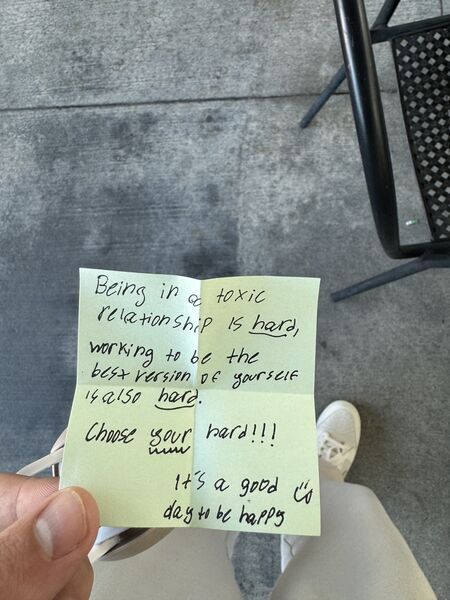 Being in a toxic
relationship is hard,
working to be the
best version of yourself
is also hard.
Choose your hard!!!
It's a good
day to be happy